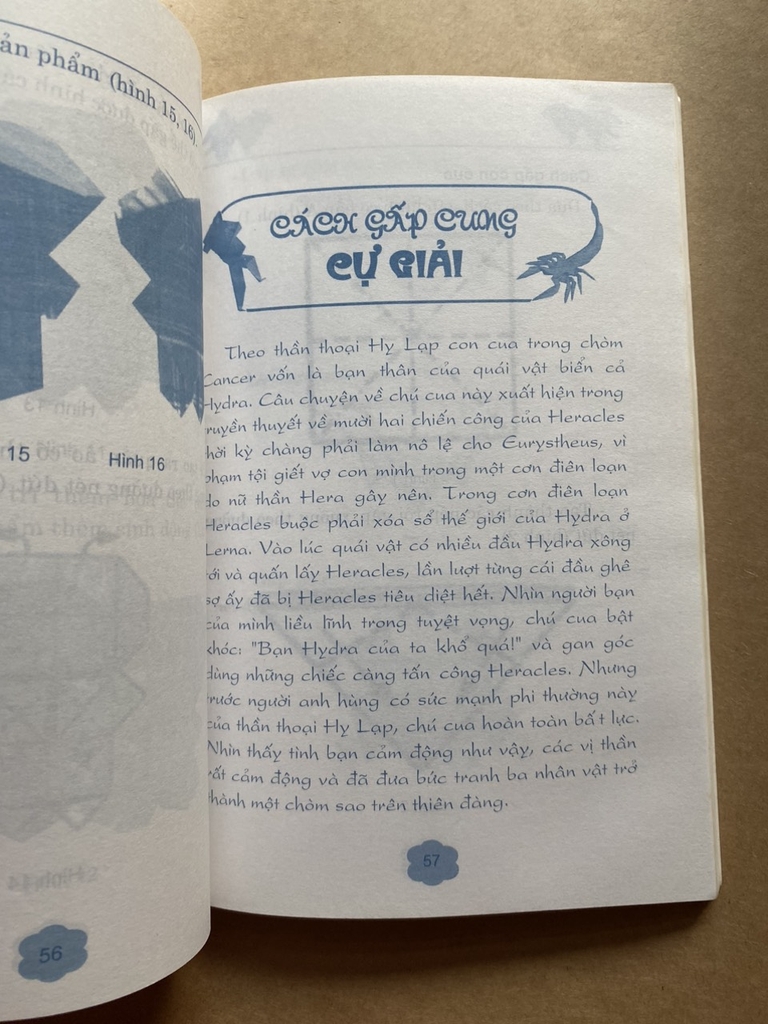 ản phẩm (hình 15, 16).
15
Hình 16
56
CÁCH GẤP CUNG
CỰ GIẢI
Theo thần thoại Hy Lạp con cua trong chòm
Cancer vốn là bạn thân của quái vật biển cả
Hydra. Câu chuyện về chú cua này xuất hiện trong
truyền thuyết về mười hai chiến công của Heracles
thời kỳ chàng phải làm nô lệ cho Eurystheus, vì
phạm tội giết vợ con mình trong một cơn điên loạn
do nữ thần Hera gây nên. Trong cơn điên loạn
Heracles buộc phải xóa sổ thế giới của Hydra ở
Lerna. Vào lúc quái vật có nhiều đầu Hydra xông
tới và quấn lấy Heracles, lần lượt từng cái đầu ghê
sợ ấy đã bị Heracles tiêu diệt hết. Nhìn người bạn
của mình liều lĩnh trong tuyệt vọng, chú cua bật
khóc: "Bạn Hydra của ta khổ quá!" và gan góc
dùng những chiếc càng tấn công Heracles. Nhưng
trước người anh hùng có sức mạnh phi thường này
của thần thoại Hy Lạp, chú cua hoàn toàn bất lực.
Nhìn thấy tình bạn cảm động như vậy, các vị thần
rất cảm động và đã đưa bức tranh ba nhân vật trở
thành một chòm sao trên thiên đàng.
57